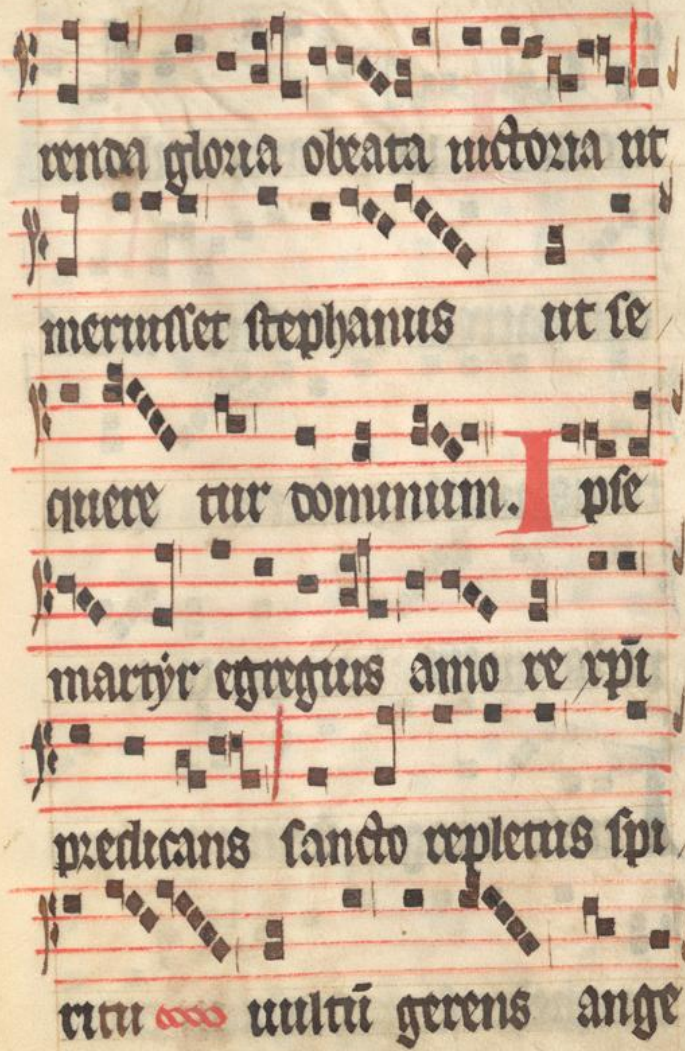 renda gloria obeata uictoria ut
meruisset stephanus ut se
quere tur dominum. I pse
martyr egregius amo re xp̄i
predicans sancto repletus spi
ritu uultū gerens ange